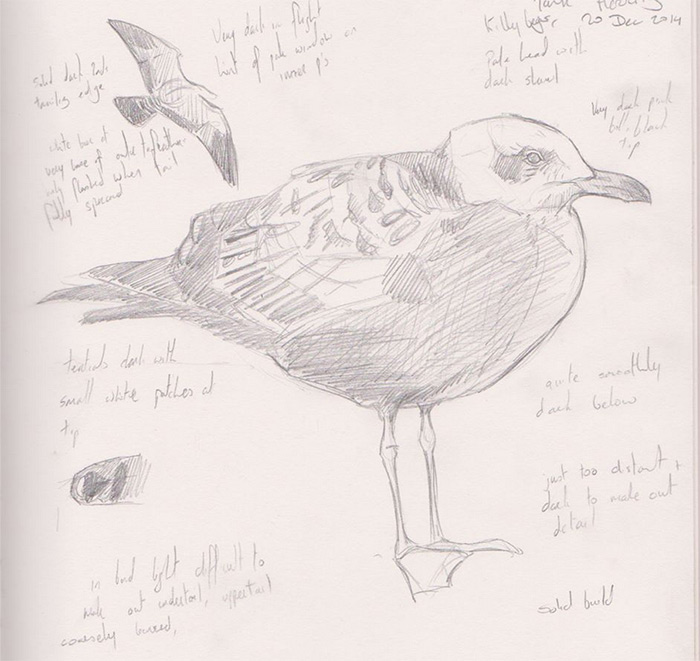 Very dark in flight
hint of pale window on
inner p's
solid dark
trailing edge
white bar at
very base of outer tailfeathers
only flashed when tail
fully spread
Killybegs, 20 Dec 2014
Pale head with
dark shawl
Very dark pink
bill, black
tip
tertials dark with
small white patches at
tip
quite smoothly
dark below
just too distant +
dark to make out
detail
in bad light difficult to
make out undertail, uppertail
coarsely barred,
solid build